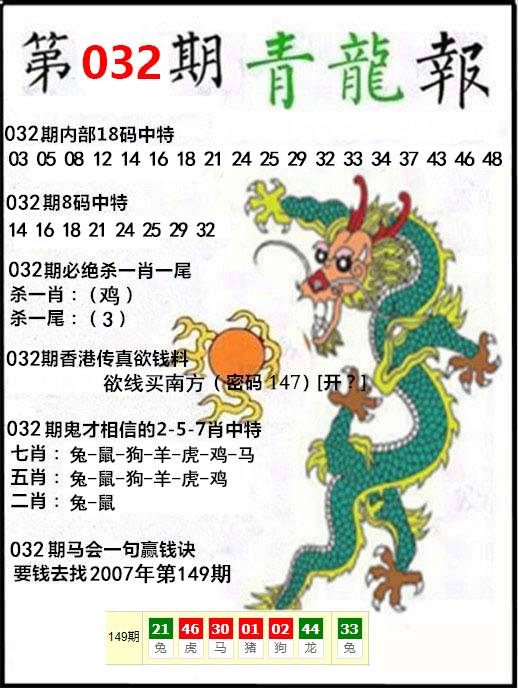 第032期青龍報
032期内部18码中特
03 05 08 12 14 16 18 21 24 25 29 32 33 34 37 43 46 48
032期8码中特
14 16 18 21 24 25 29 32
032期必绝杀一肖一尾
杀一肖：（鸡）
杀一尾：（3）
032期香港传真欲钱料
欲线买南方（密码147）[开？]
032期鬼才相信的2-5-7肖中特
七肖：兔-鼠-狗-羊-虎-鸡-马
五肖：兔-鼠-狗-羊-虎-鸡
二肖：兔-鼠
032期马会一句赢钱诀
要钱去找2007年第149期
149期 21 46 30 01 02 44 33
兔 虎 马 猪 狗 龙 兔